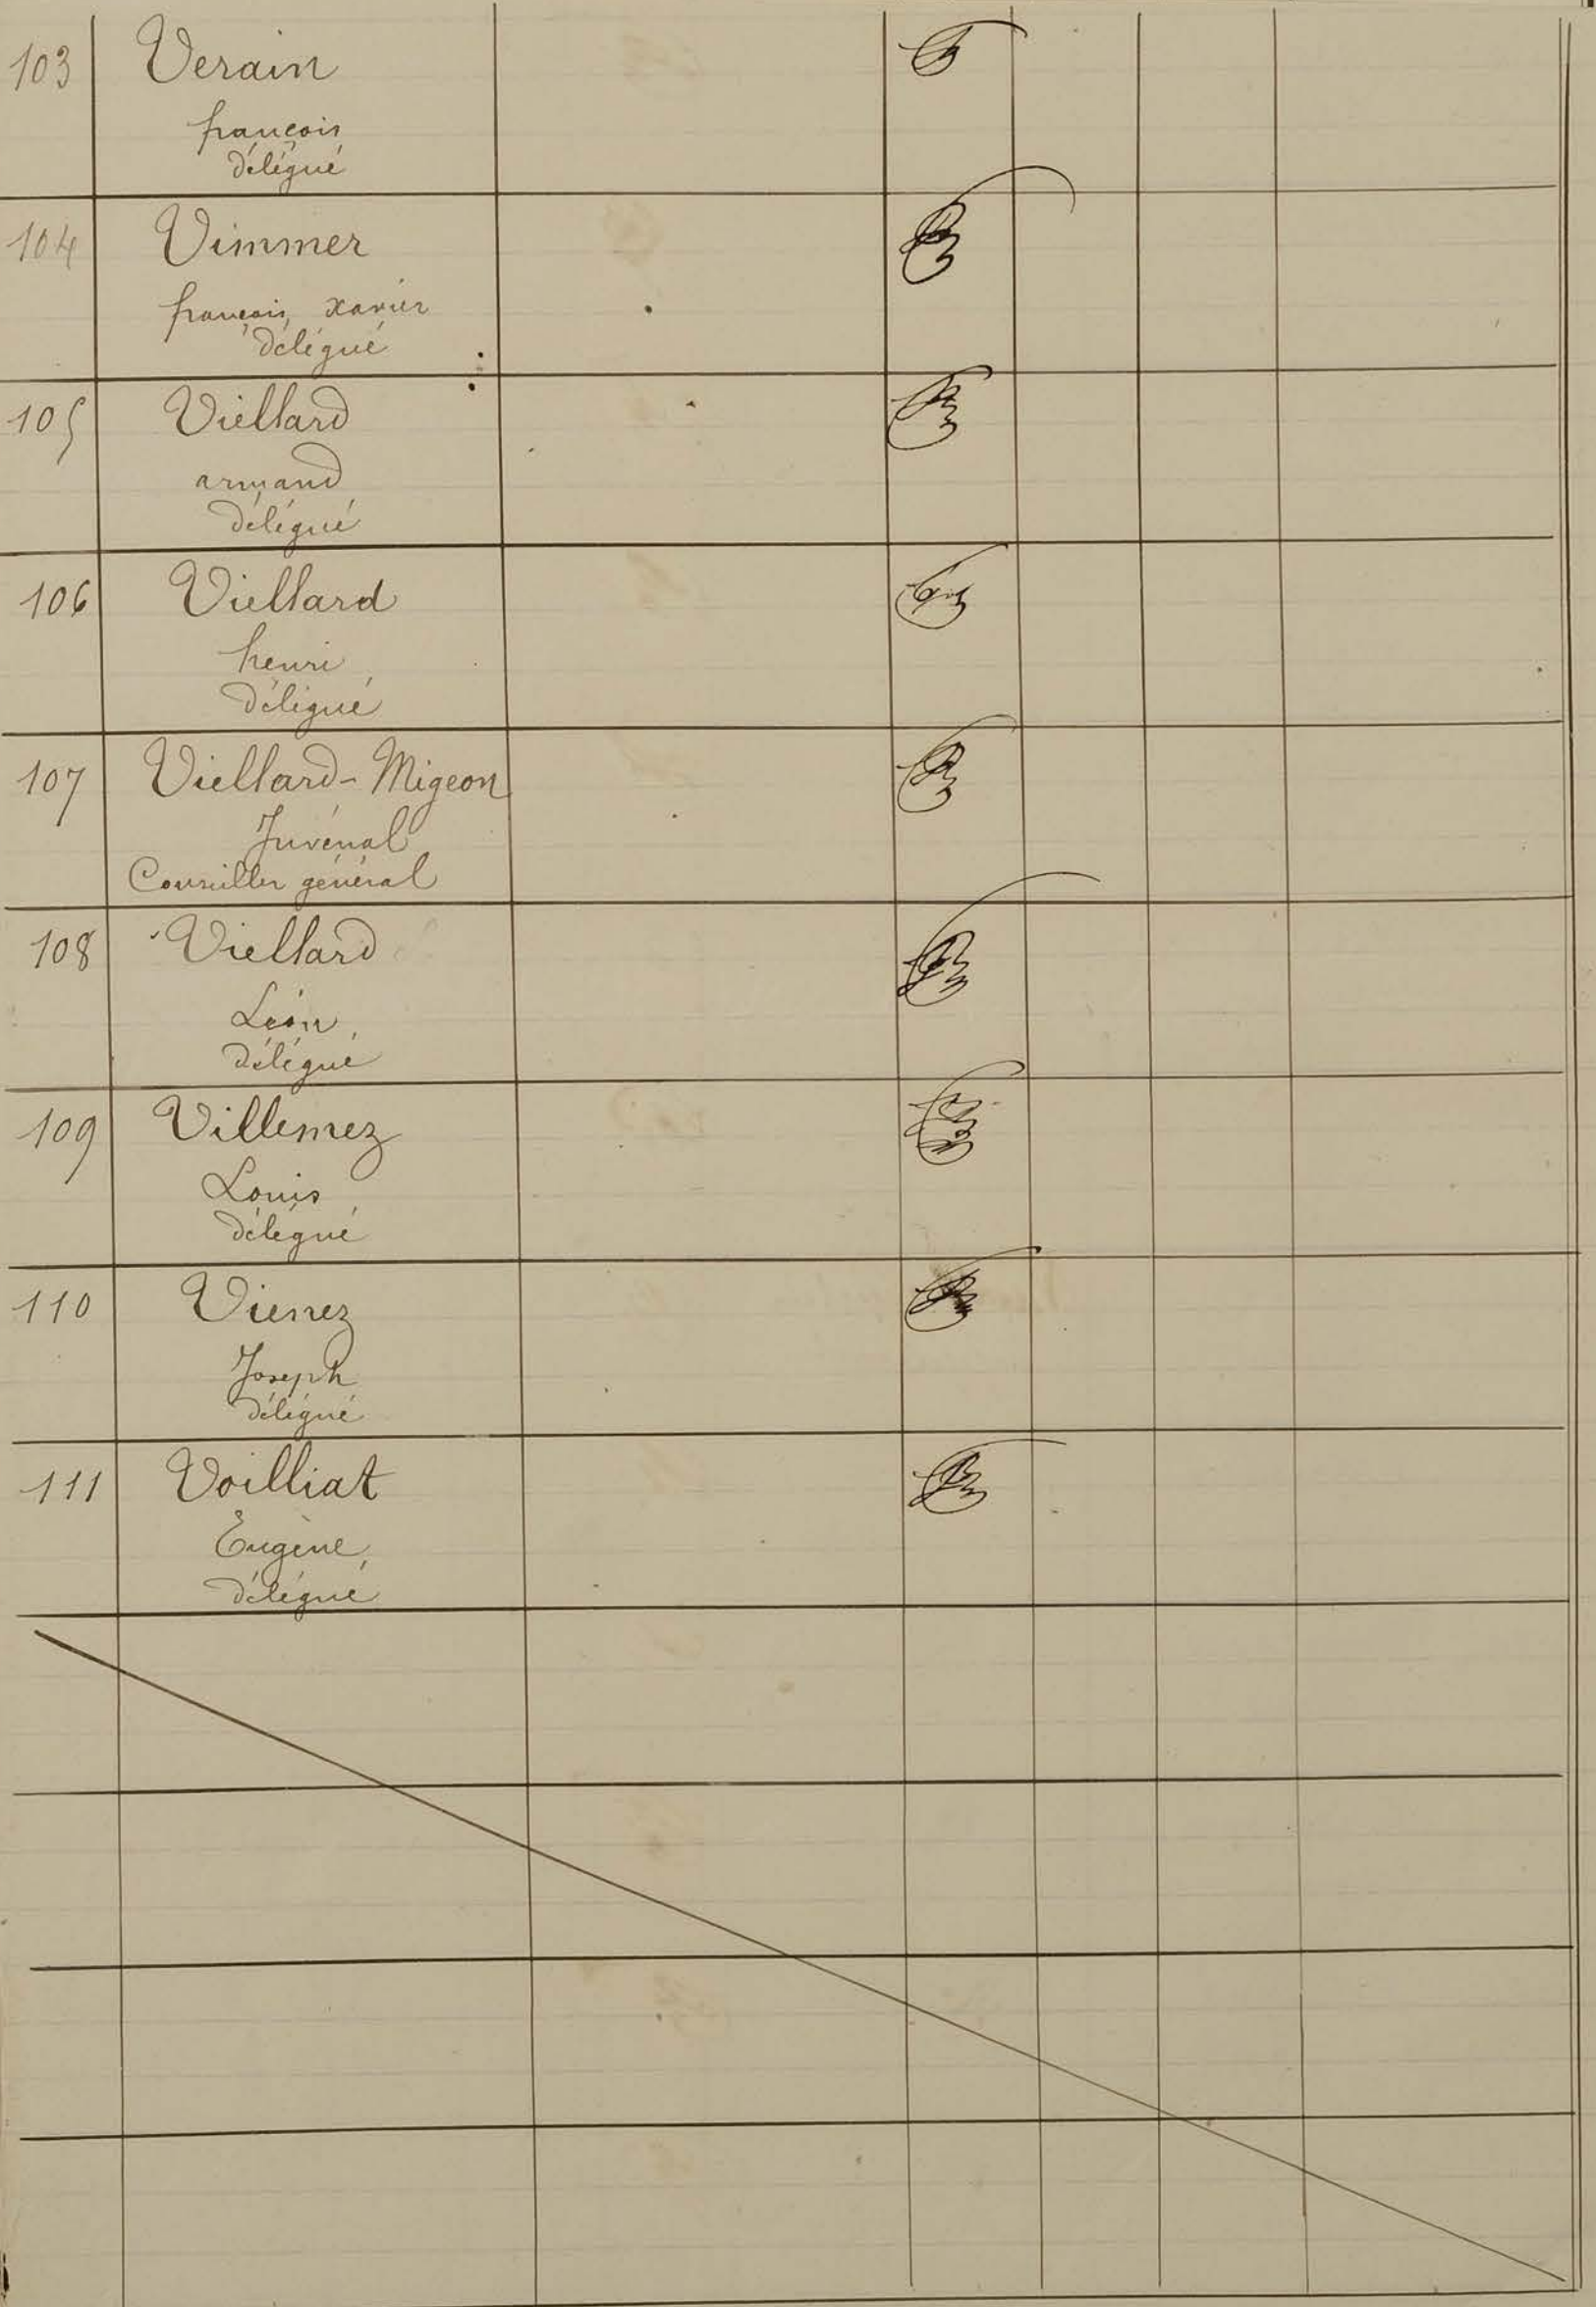 103 Verain
françois
délégué
104 Vimmer
françois, xavier
délégué
105 Viellard
armand
délégué
106 Viellard
henri
délégué
107 Viellard-Migeon
Juvénal
Conseiller général
108 Viellard
Léon,
délégué
109 Villemez
Louis
délégué
110 Vienez
Joseph
délégué
111 Voilliat
Eugène,
délégué